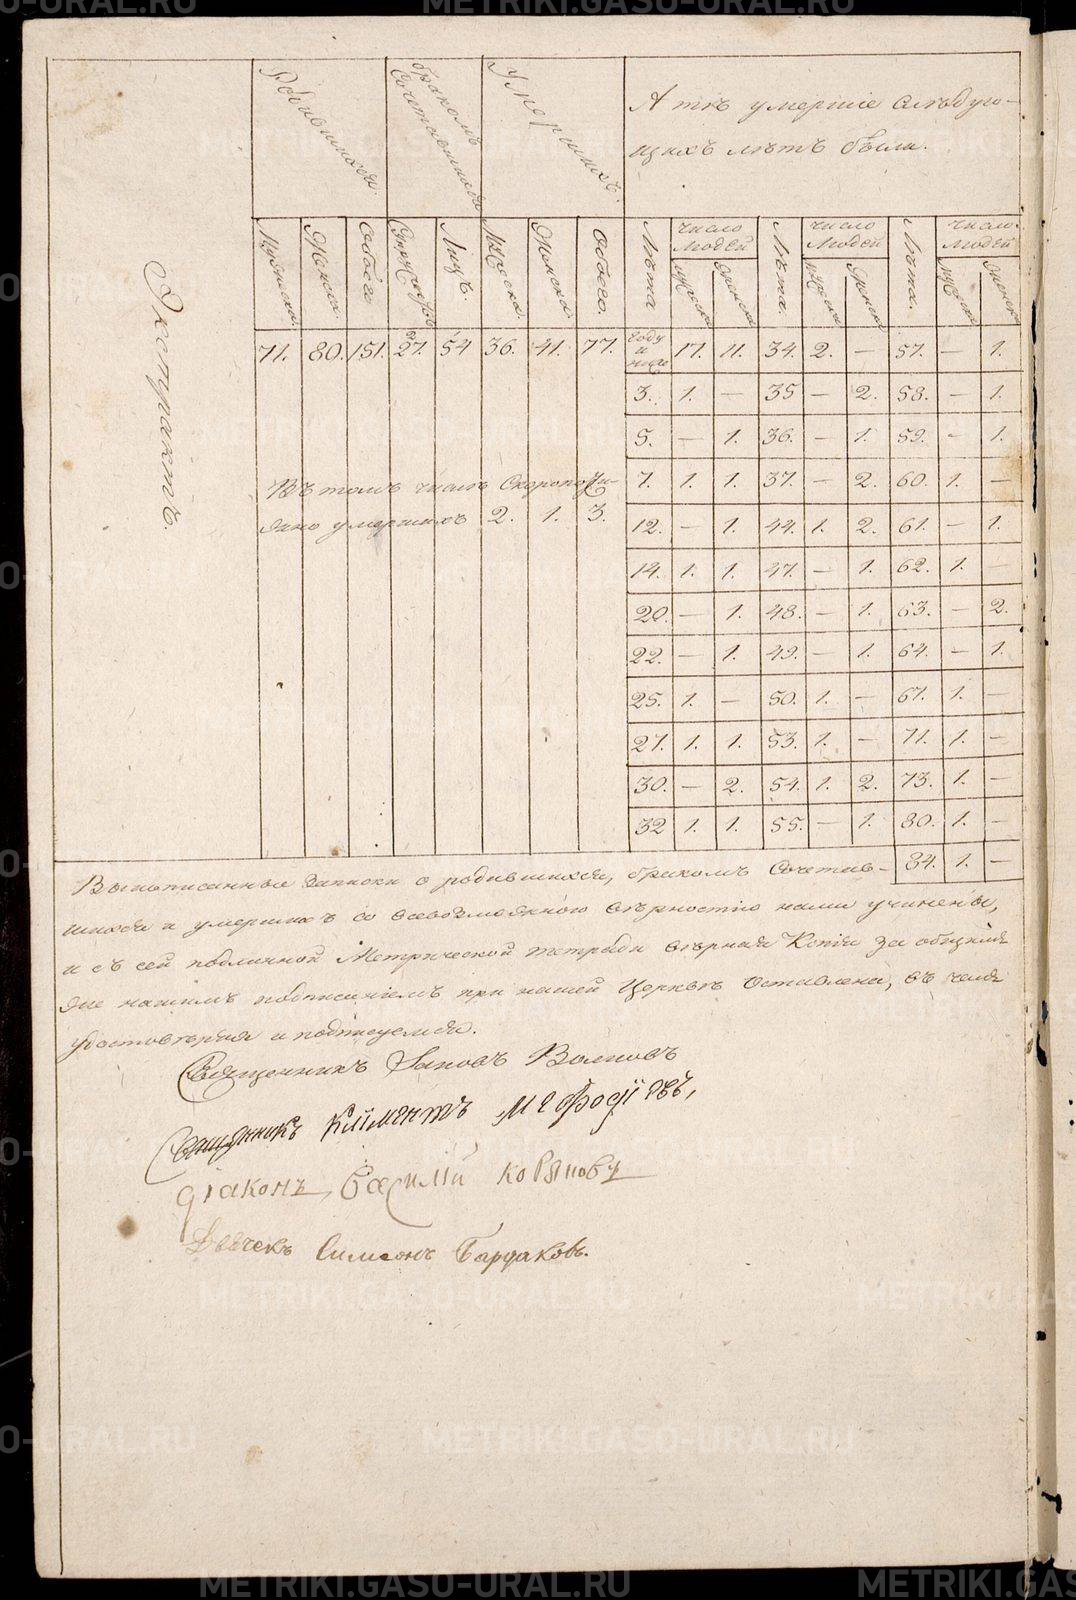 Экстрактъ.
Родившихся.
бракомъ сочетавшихся
Умершихъ.
А тѣ умершіе слѣдую-
щихъ лѣтъ были.
Мужеска.
Женска.
Обоего
Супружествъ
Лицъ.
Мужеска.
Женска.
Обоего.
Лѣта
число людей
мужеска
женска
Лѣта.
число людей
мужеска
женска
Лѣта.
число людей
мужеска
женска
71. 80. 151. 27. 54 36. 41. 77. году и ниже 17. 11. 34. 2. — 57. — 1.
3. 1. — 35 — 2. 58. — 1.
5. — 1. 36. — 1. 59. — 1.
Въ томъ числѣ скоропости-
жно умершихъ 2. 1. 3.
7. 1. 1. 37. — 2. 60. 1. —
12. — 1. 44. 1. 2. 61. — 1.
14. 1. 1. 47. — 1. 62. 1. —
20. — 1. 48. — 1. 63. — 2.
22. — 1. 49. — 1. 64. — 1.
25. 1. — 50. 1. — 67. 1. —
27. 1. 1. 53. 1. — 71. 1. —
30. — 2. 54. 1. 2. 73. 1. —
32 1. 1. 55. — 1. 80. 1. —
84. 1. —
Вышеписанные записки о родившихся, бракомъ сочетав-
шихся и умершихъ со всевозможною вѣрностію нами учинены,
и съ сей подлинной Метрической тетради вѣрная Копія за общимъ
же нашимъ подписаніемъ при нашей Церквѣ оставлена, въ чемъ
удостовѣряя и подписуемся.
Священникъ Іаковъ Волковъ
Священникъ Климентъ Мефодіевъ,
діаконъ Василій Коряковъ
Дьячекъ Симеонъ Бардаковъ.
METRIKI.GASO-URAL.RU